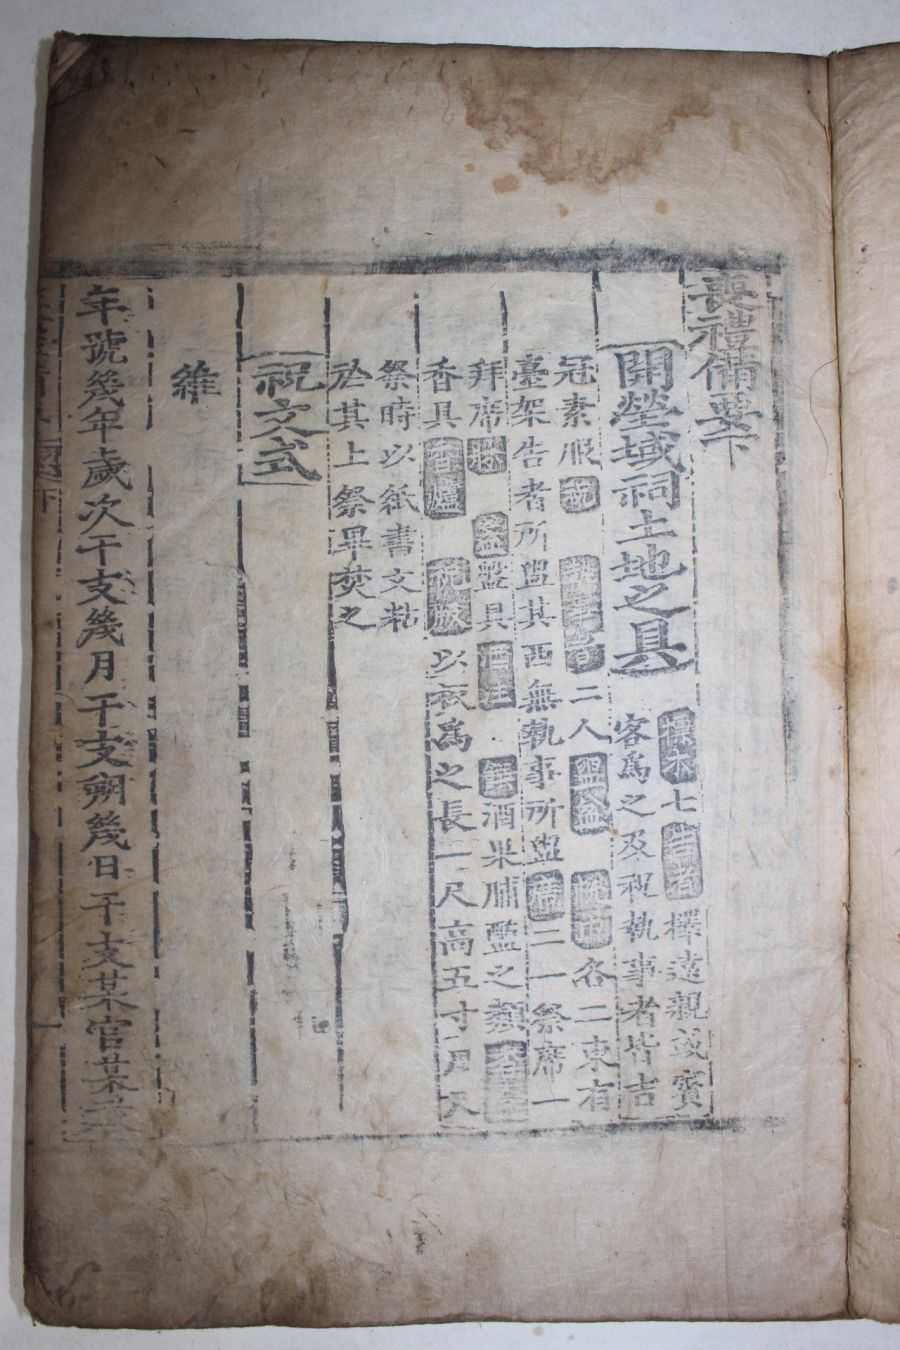 喪禮備要下
開塋域祠土地之具
七告者擇遠親或賓
客爲之及祝執事者皆吉
冠素服祝執事者二人盥盆各二東有
臺架告者所盥其西無執事所盥二一祭席一
拜席盞盤具酒果脯醢之類
香具香爐祝版以板爲之長一尺高五寸周尺
祭時以紙書文粘
於其上祭畢焚之
祝文式
維
年號幾年歲次干支幾月干支朔幾日干支某官某